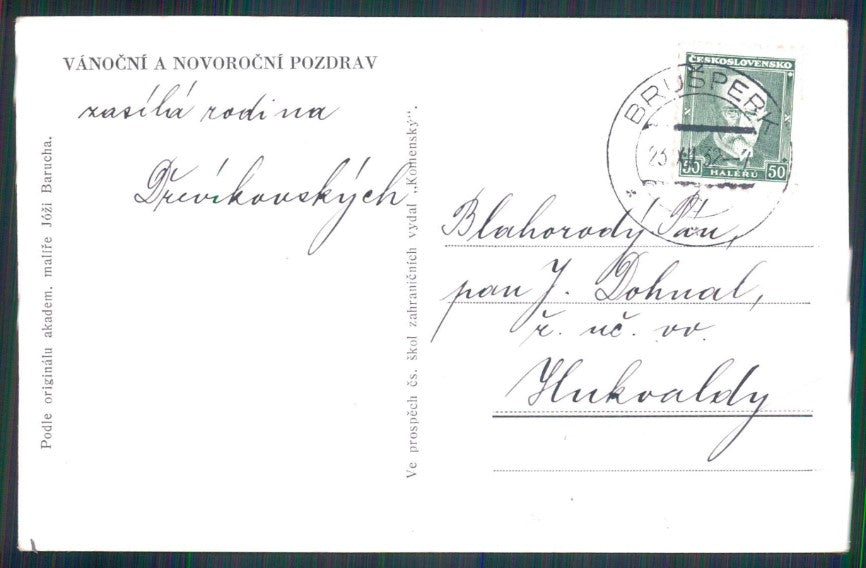 VÁNOČNÍ A NOVOROČNÍ POZDRAV
zasílá rodina
Dřevíkovských
Podle originálu akadem. malíře Jóži Barucha.
Ve prospěch čs. škol zahraničních vydal „Komenský“.
ČESKOSLOVENSKO
50 HALÉRŮ 50
BRUŠPERK
Blahorodý Pan,
pan J. Dohnal,
ř. uč. vv.
Hukvaldy